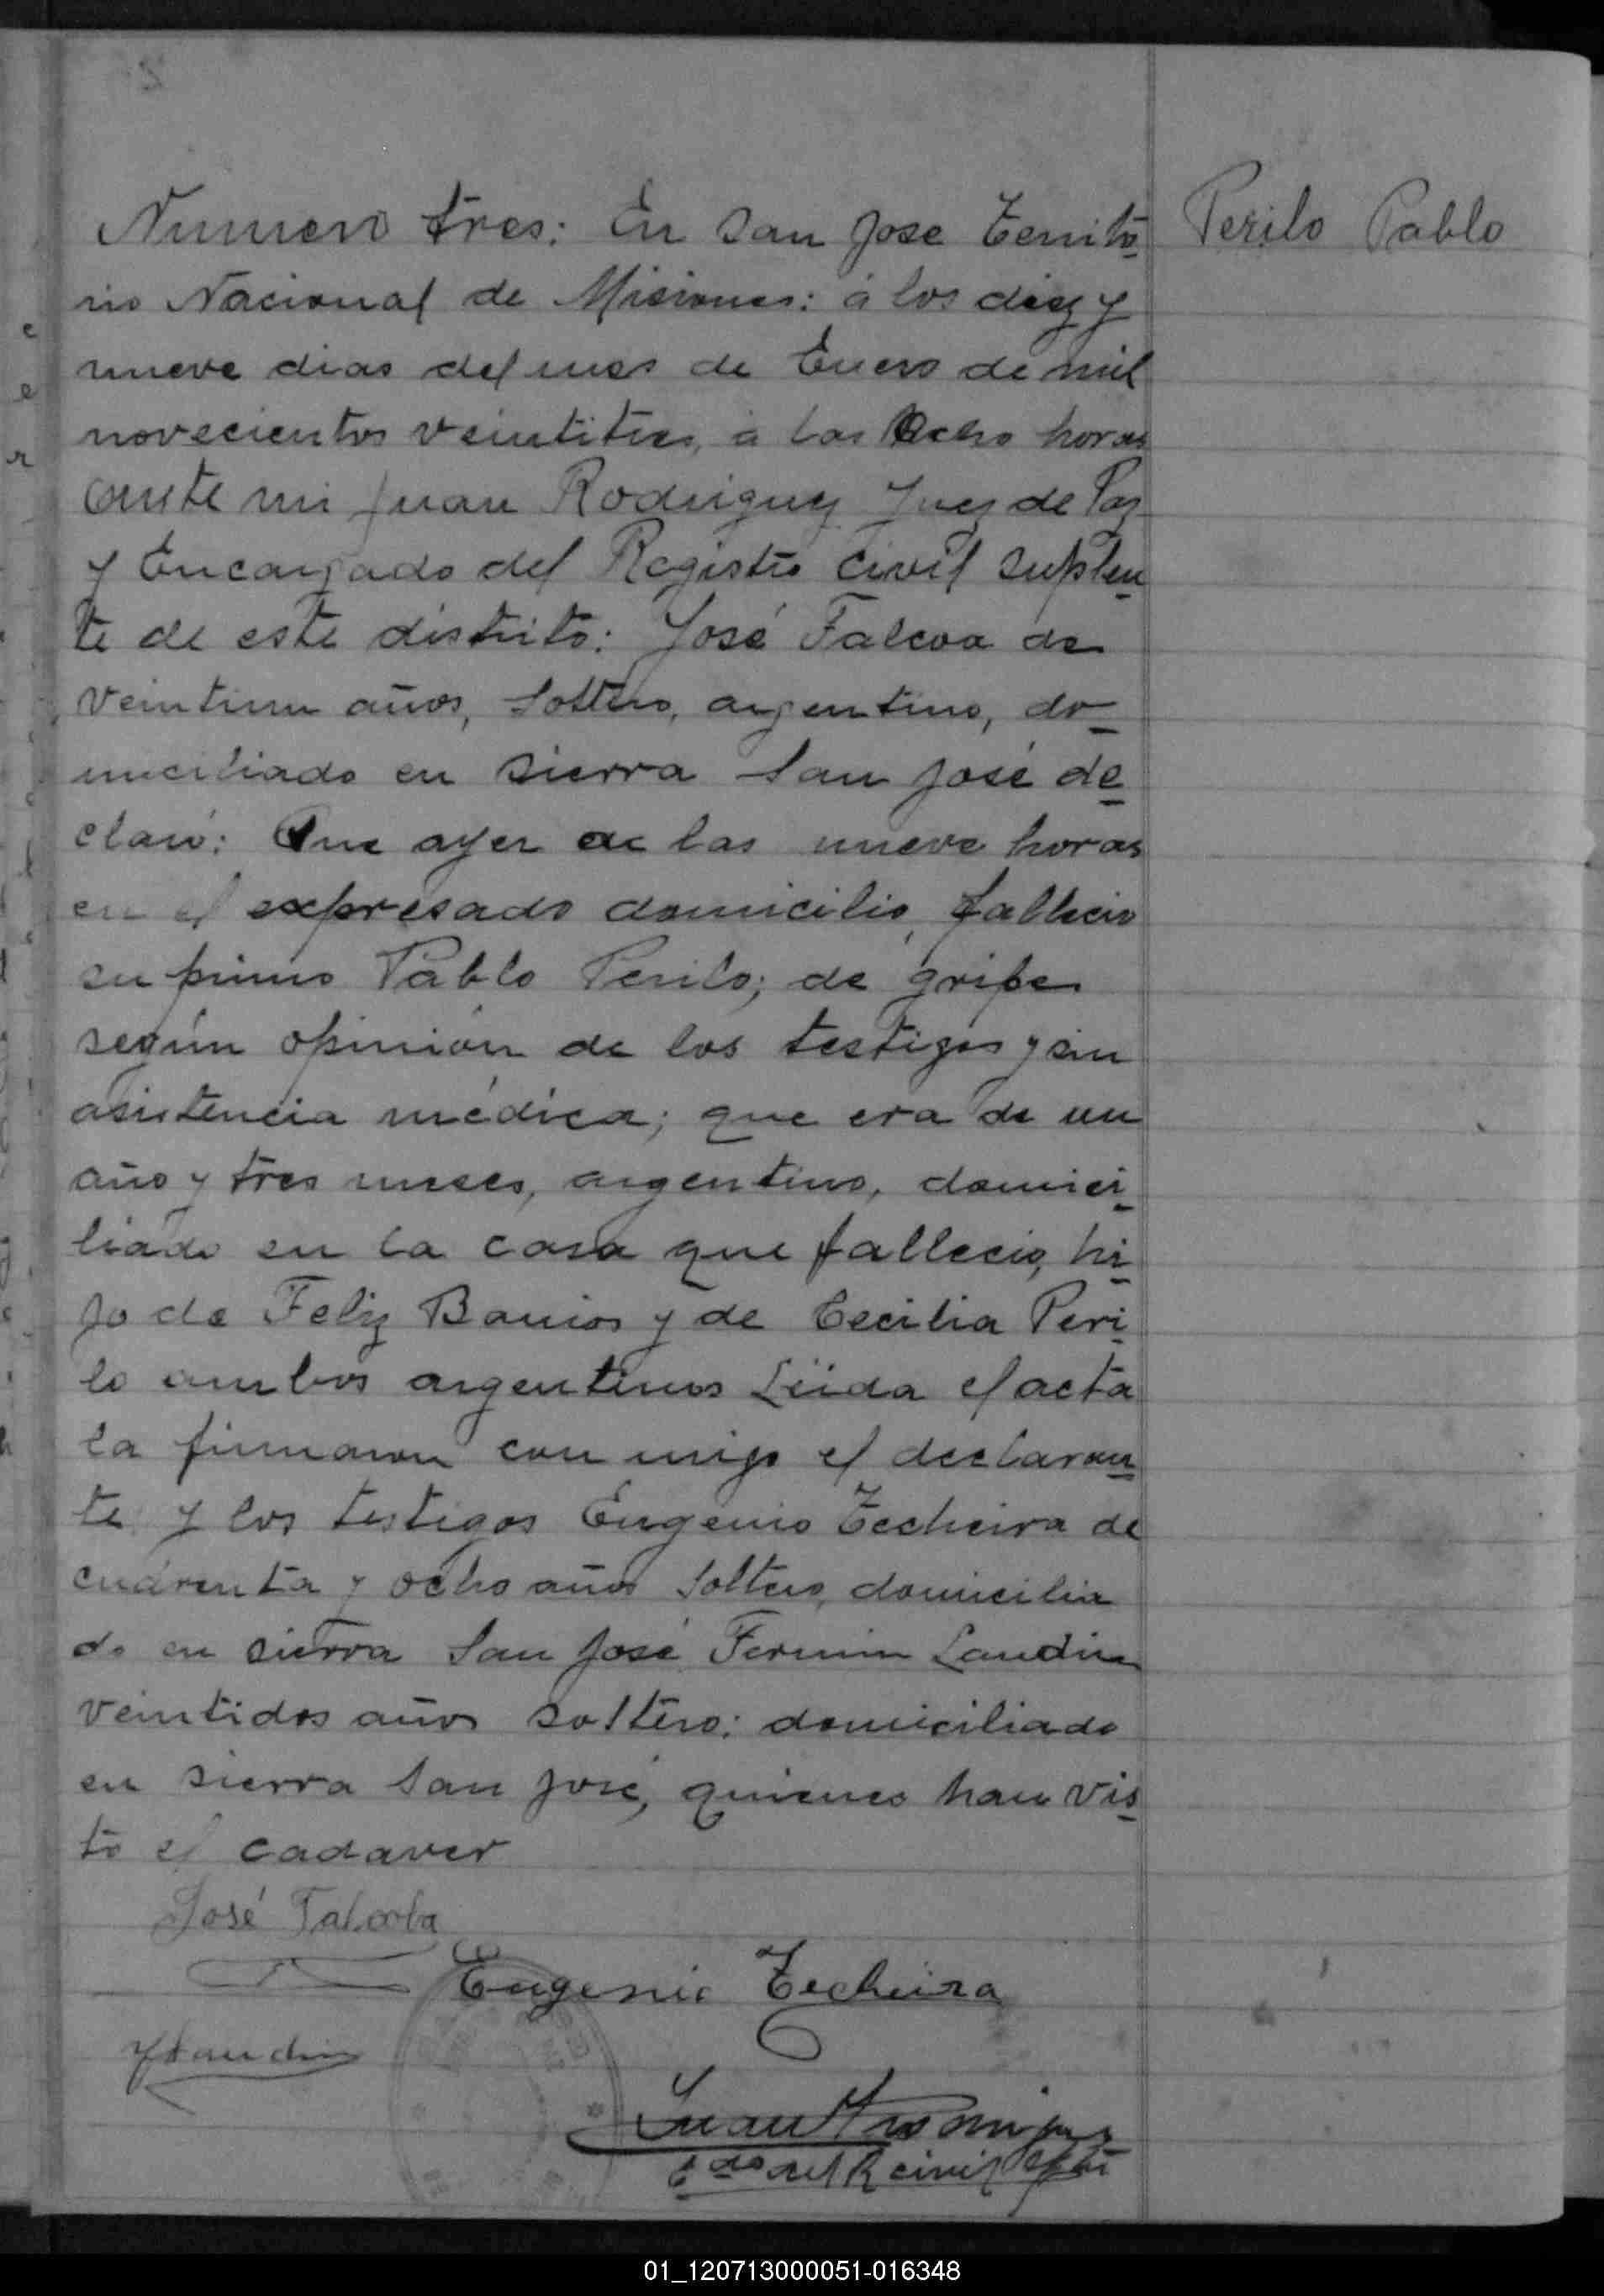 Numero tres: En San Jose Territo
rio Nacional de Misiones: á los diez y
nueve dias del mes de Enero de mil
novecientos veintitres, á las Ocho horas
ante mi Juan Rodriguez Juez de Paz
y Encargado del Registro Civil suplen
te de este distrito: José Falcoa de
veintiun años, soltero, argentino, do
miciliado en sierra San José de
claró: Que ayer a las nueve horas
en el expresado domicilio, fallecio
su primo Pablo Perilo; de gripe
según opinión de los testigos y sin
asistencia médica; que era de un
año y tres meses, argentino, domici
liado en la casa que fallecio, hi
jo de Feliz Barrios y de Cecilia Peri
lo ambos argentinos Leida el acta
la firmaron con migo el declaran
te y los testigos Eugenio Techeira de
cuarenta y ocho años soltero, domicilia
do en sierra San José Fermin Landin
veintidos años soltero: domiciliado
en sierra San José, quienes han vis
to el cadaver
Perilo Pablo
José
Eugenio Techeira
Landin
Juan
del R civil
01_120713000051-016348